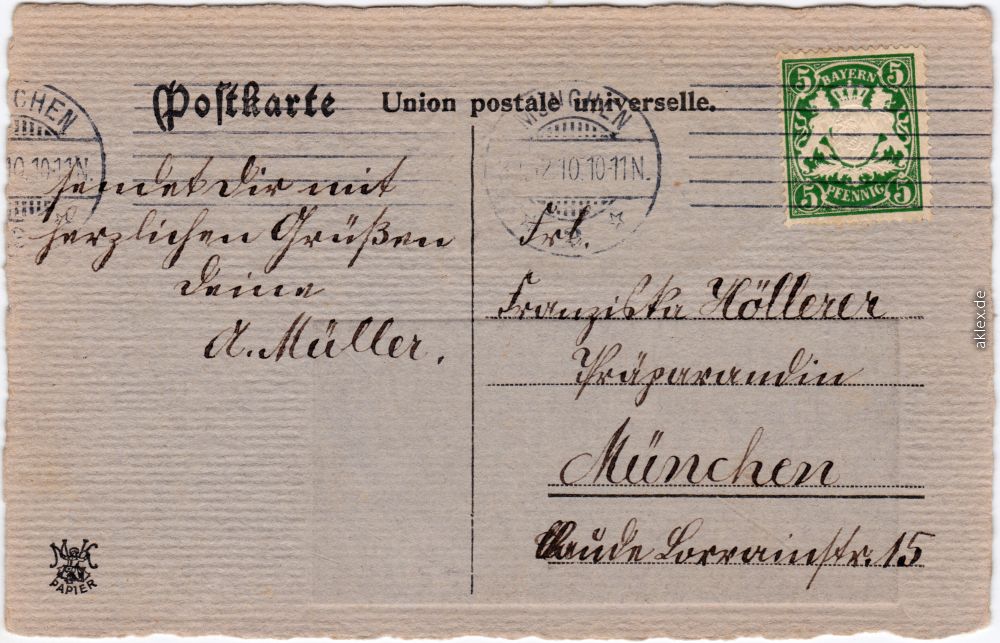 Postkarte Union postale universelle.
BAYERN
5 5
5 5
PFENNIG
MÜNCHEN
2.10.10-11N.
CHEN
10.10-11N.
sendet Dir mit
herzlichen Grüßen
Deine
A. Müller.
Frl.
Franziska Höllerer
Präparandin
München
Claude Lorrainstr. 15
M&K
PAPIER
aklex.de